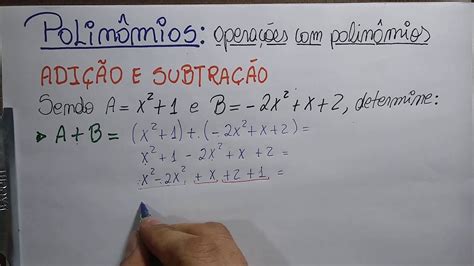 Polinômios: operações com polinômios
ADIÇÃO E SUBTRAÇÃO
Sendo A = x² + 1 e B = -2x² + x + 2, determine:
A + B = (x² + 1) + (-2x² + x + 2) =
x² + 1 - 2x² + x + 2 =
x² - 2x² + x + 2 + 1 =